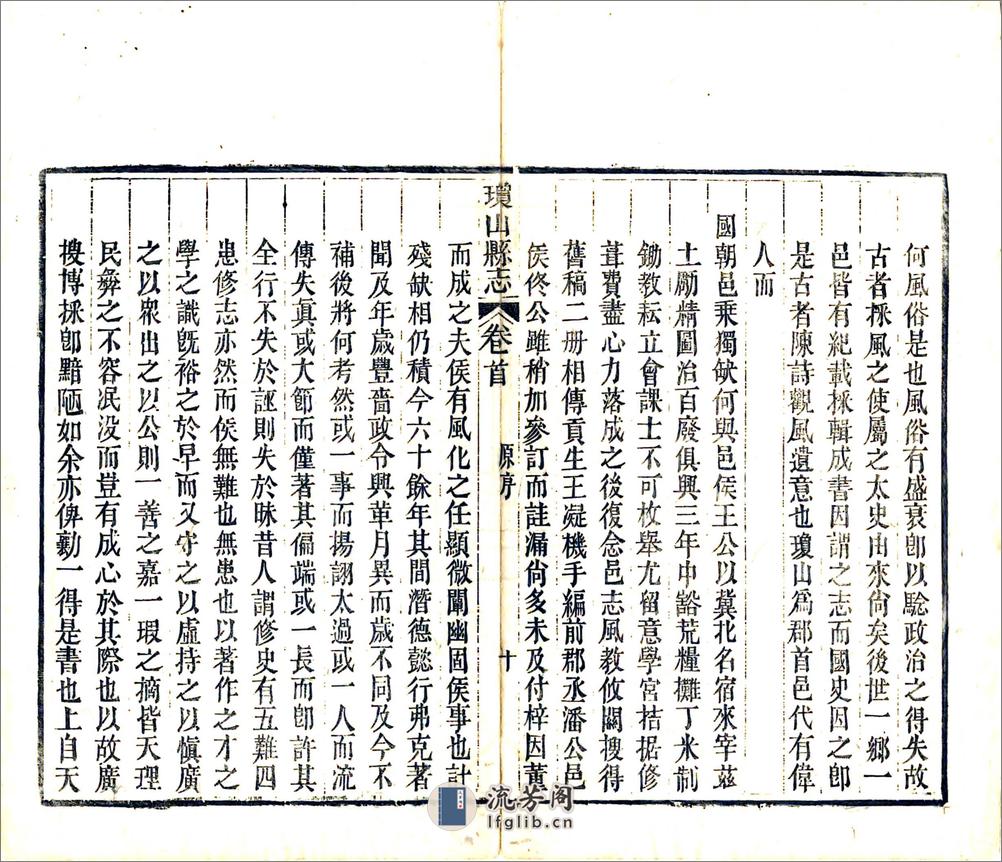 何風俗是也風俗有盛衰卽以驗政治之得失故
古者採風之使屬之太史由來尙矣後世一鄉一
邑皆有紀載採輯成書因謂之志而國史因之卽
是古者陳詩觀風遺意也瓊山爲郡首邑代有偉
人而
國朝邑乘獨缺何與邑侯王公以冀北名宿來宰茲
土勵精圖治百廢俱興三年中豁荒糧攤丁米制
鋤教耘立會課士不可枚舉尤留意學宮拮据修
葺費盡心力落成之後復念邑志風教攸關搜得
舊稿二册相傳貢生王凝機手編前郡丞潘公邑
侯佟公雖稍加參訂而註漏尙多未及付梓因黃
瓊山縣志
卷首
原序
十
而成之夫侯有風化之任顯微闡幽固侯事也計
殘缺相仍積今六十餘年其間潛德懿行弗克著
聞及年歲豐嗇政令興革月異而歲不同及今不
補後將何考然或一事而揚詡太過或一人而流
傳失眞或大節而僅著其偏端或一長而卽許其
全行不失於誣則失於昧昔人謂修史有五難四
患修志亦然而侯無難也無患也以著作之才之
學之識旣裕之於早而又守之以虛持之以愼廣
之以衆出之以公則一善之嘉一瑕之摘皆天理
民彝之不容泯没而豈有成心於其際也以故廣
搜博採卽黯陋如余亦俾勷一得是書也上自天
流芳阁
lfglib.cn